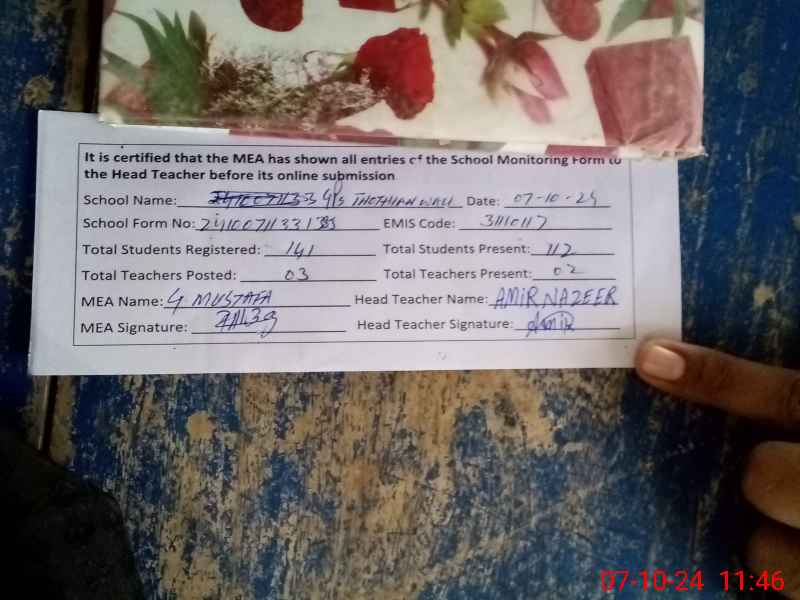 It is certified that the MEA has shown all entries of the School Monitoring Form to
the Head Teacher before its online submission
School Name: G/Ps THOTHIAN WALI Date: 07-10-24
School Form No: EMIS Code: 31110117
Total Students Registered: 141 Total Students Present: 112
Total Teachers Posted: 03 Total Teachers Present: 02
MEA Name: G MUSTAFA Head Teacher Name: AMIR NAZEER
MEA Signature: Head Teacher Signature: Amir
07-10-24 11:46